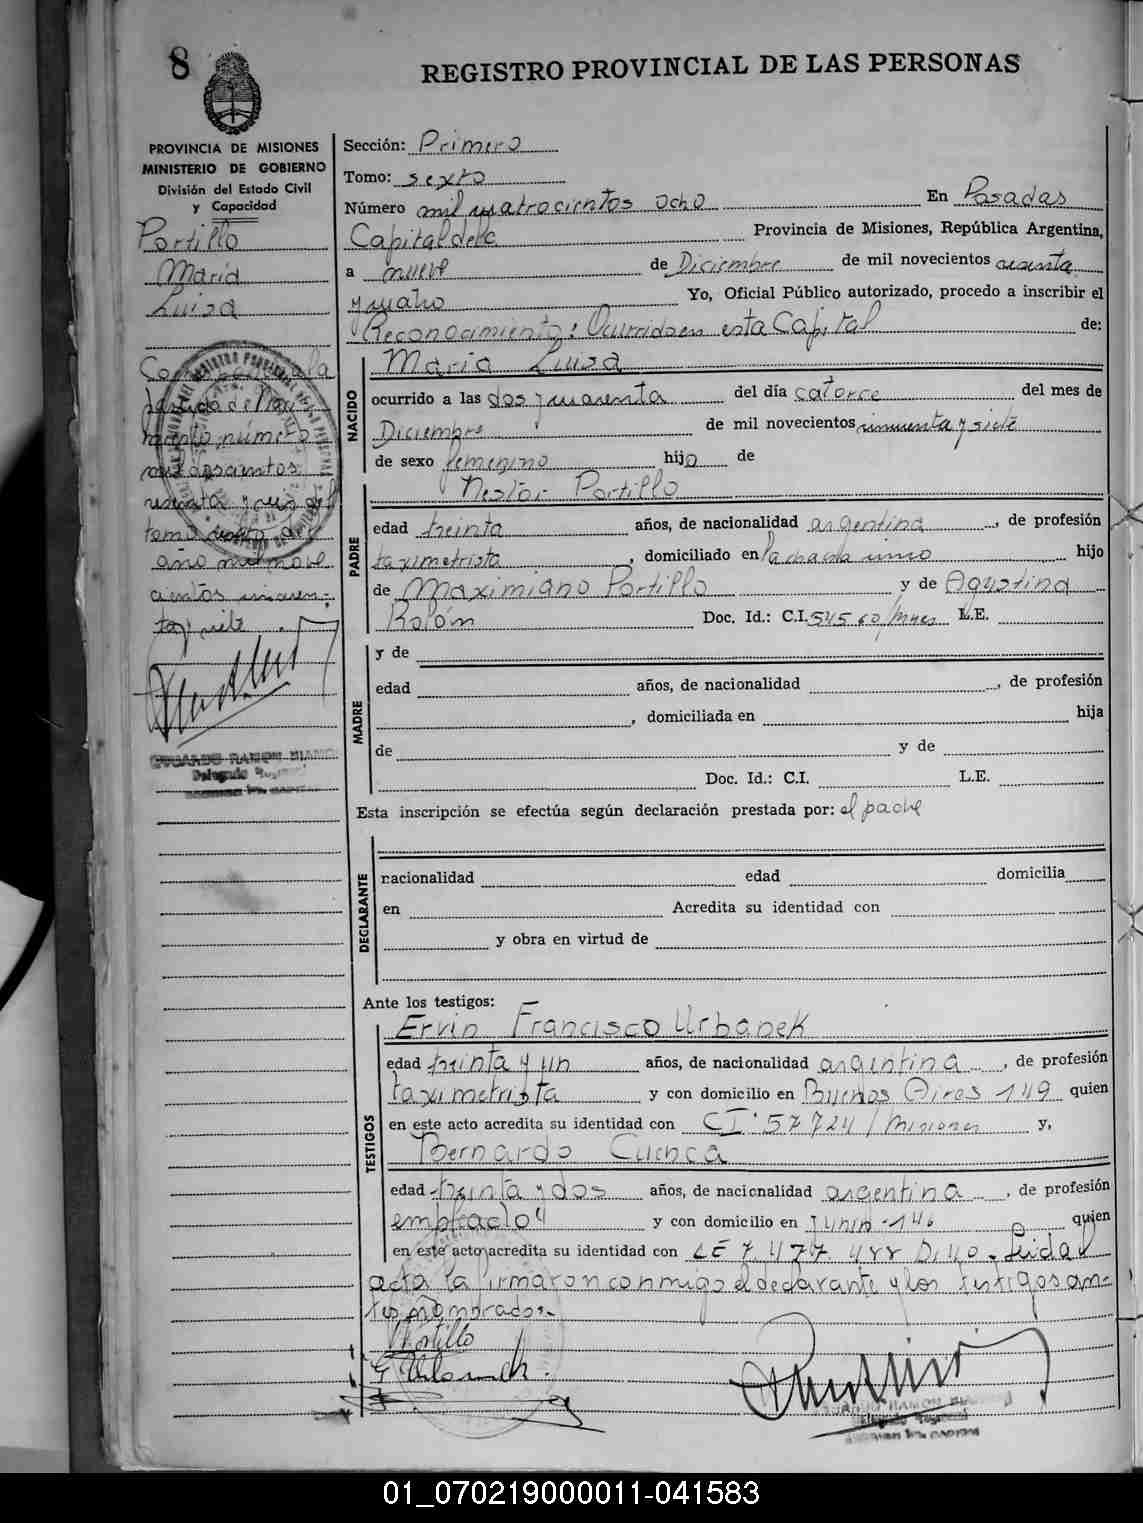 8
REGISTRO PROVINCIAL DE LAS PERSONAS
PROVINCIA DE MISIONES
MINISTERIO DE GOBIERNO
División del Estado Civil
y Capacidad
Portillo
María
Luisa
partida de Naci
miento número
tomo sexto
año mil nove
cientos
Sección: Primero
Tomo: sexto
Número mil cuatrocientos ocho En Posadas
Capital de la Provincia de Misiones, República Argentina,
a nueve de Diciembre de mil novecientos sesenta
y cuatro Yo, Oficial Público autorizado, procedo a inscribir el
Reconocimiento: Ocurrido en esta Capital de:
NACIDO
María Luisa
ocurrido a las dos y cuarenta del día catorce del mes de
Diciembre de mil novecientos cincuenta y siete
de sexo femenino hija de
PADRE
Nestor Portillo
edad treinta años, de nacionalidad argentina, de profesión
taximetrista, domiciliado en la chacra hijo
de Maximiano Portillo y de Agustina
Rolón Doc. Id.: C.I. 54560/Mnes L.E.
MADRE
y de
edad años, de nacionalidad, de profesión
, domiciliada en hija
de y de
Doc. Id.: C.I. L.E.
Esta inscripción se efectúa según declaración prestada por: el padre
DECLARANTE
nacionalidad edad domicilia
en Acredita su identidad con
y obra en virtud de
Ante los testigos:
TESTIGOS
Ervin Francisco Urbanek
edad treinta y un años, de nacionalidad argentina, de profesión
taximetrista y con domicilio en Buenos Aires 149 quien
en este acto acredita su identidad con CI 57724/Misiones y,
Bernardo Cuenca
edad treinta y dos años, de nacionalidad argentina, de profesión
empleado y con domicilio en Junin 146 quien
en este acto acredita su identidad con LE 7.477.488 D.40. Leida el
acta la firmaron conmigo el declarante y los testigos an-
tes nombrados.-
Portillo
01_070219000011-041583